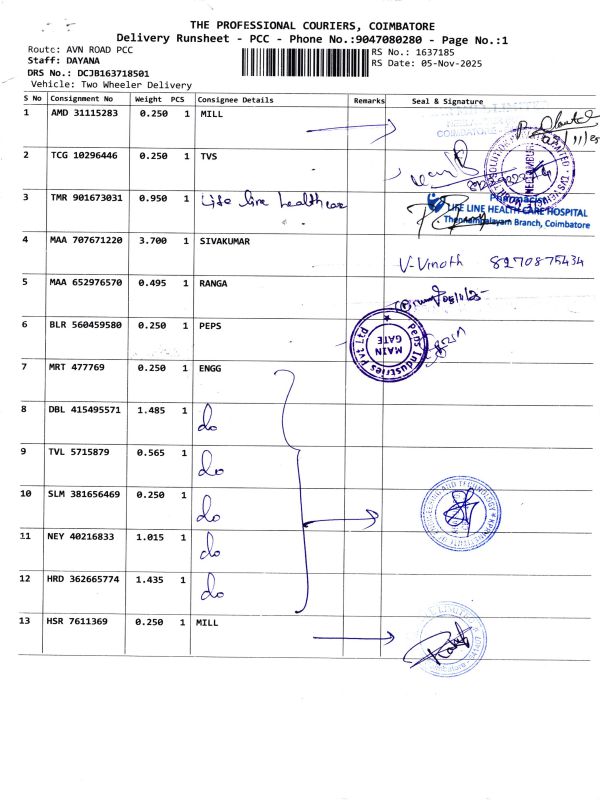 THE PROFESSIONAL COURIERS, COIMBATORE
Delivery Runsheet - PCC - Phone No.:9047080280 - Page No.:1
Route: AVN ROAD PCC
RS No.: 1637185
Staff: DAYANA
RS Date: 05-Nov-2025
DRS No.: DCJB163718501
Vehicle: Two Wheeler Delivery
S No Consignment No Weight PCS Consignee Details Remarks Seal & Signature
1 AMD 31115283 0.250 1 MILL
2 TCG 10296446 0.250 1 TVS
3 TMR 901673031 0.950 1 Life line healthcare
Pharmacist
LIFE LINE HEALTH CARE HOSPITAL
Thennampalayam Branch, Coimbatore
4 MAA 707671220 3.700 1 SIVAKUMAR V-Vinoth 8270875434
5 MAA 652976570 0.495 1 RANGA
6 BLR 560459580 0.250 1 PEPS
Peps Industries Pvt Ltd
MAIN GATE
7 MRT 477769 0.250 1 ENGG
8 DBL 415495571 1.485 1 do
9 TVL 5715879 0.565 1 do
10 SLM 381656469 0.250 1 do
11 NEY 40216833 1.015 1 do
12 HRD 362665774 1.435 1 do
13 HSR 7611369 0.250 1 MILL